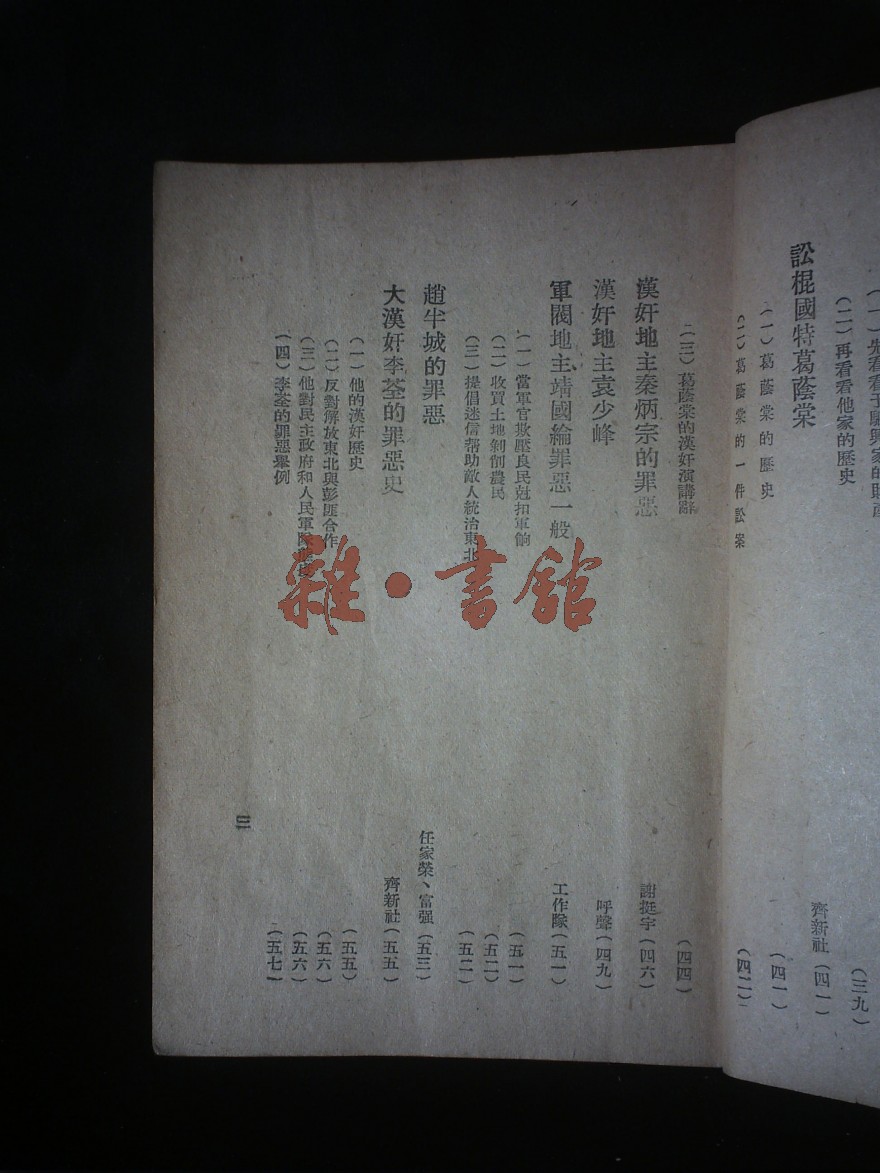 (一)先看看于駟興家的財產
(二)再看看他家的歷史 (三九)
訟棍國特葛蔭棠 齊新社(四一)
(一)葛蔭棠的歷史 (四一)
(二)葛蔭棠的一件訟案 (四二)
(三)葛蔭棠的漢奸演講辭 (四四)
漢奸地主秦炳宗的罪惡 謝挺宇(四六)
漢奸地主袁少峰 呼聲(四九)
軍閥地主靖國綸罪惡一般 工作隊(五一)
(一)當軍官欺壓良民尅扣軍餉 (五一)
(二)收買土地剝削農民 (五二)
(三)提倡迷信帮助敵人統治東北 (五二)
趙半城的罪惡 任家榮、富强(五三)
大漢奸李荃的罪惡史 齊新社(五五)
(一)他的漢奸歷史 (五五)
(二)反對解放東北與彭匪合作 (五六)
(三)他對民主政府和人民軍隊 (五六)
(四)李荃的罪惡舉例 (五七)
三
雜·書館